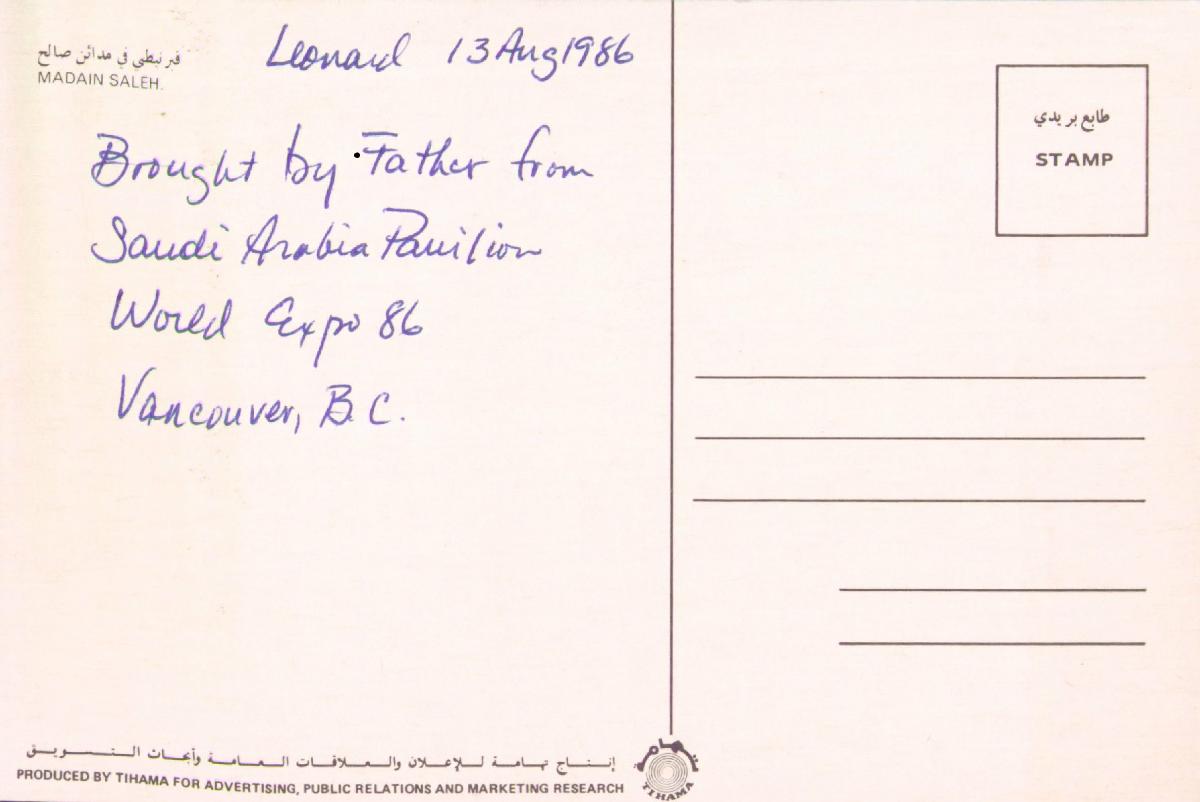 قبر نبطي في مدائن صالح
MADAIN SALEH.
Leonard 13 Aug 1986
Brought by Father from
Saudi Arabia Pavilion
World Expo 86
Vancouver, B.C.
طابع بريدي
STAMP
إنتــاج تهـامـة للإعـلان والعـلاقـات العـامـة وأبحـاث التـسـويـق
PRODUCED BY TIHAMA FOR ADVERTISING, PUBLIC RELATIONS AND MARKETING RESEARCH
تهامة
TIHAMA